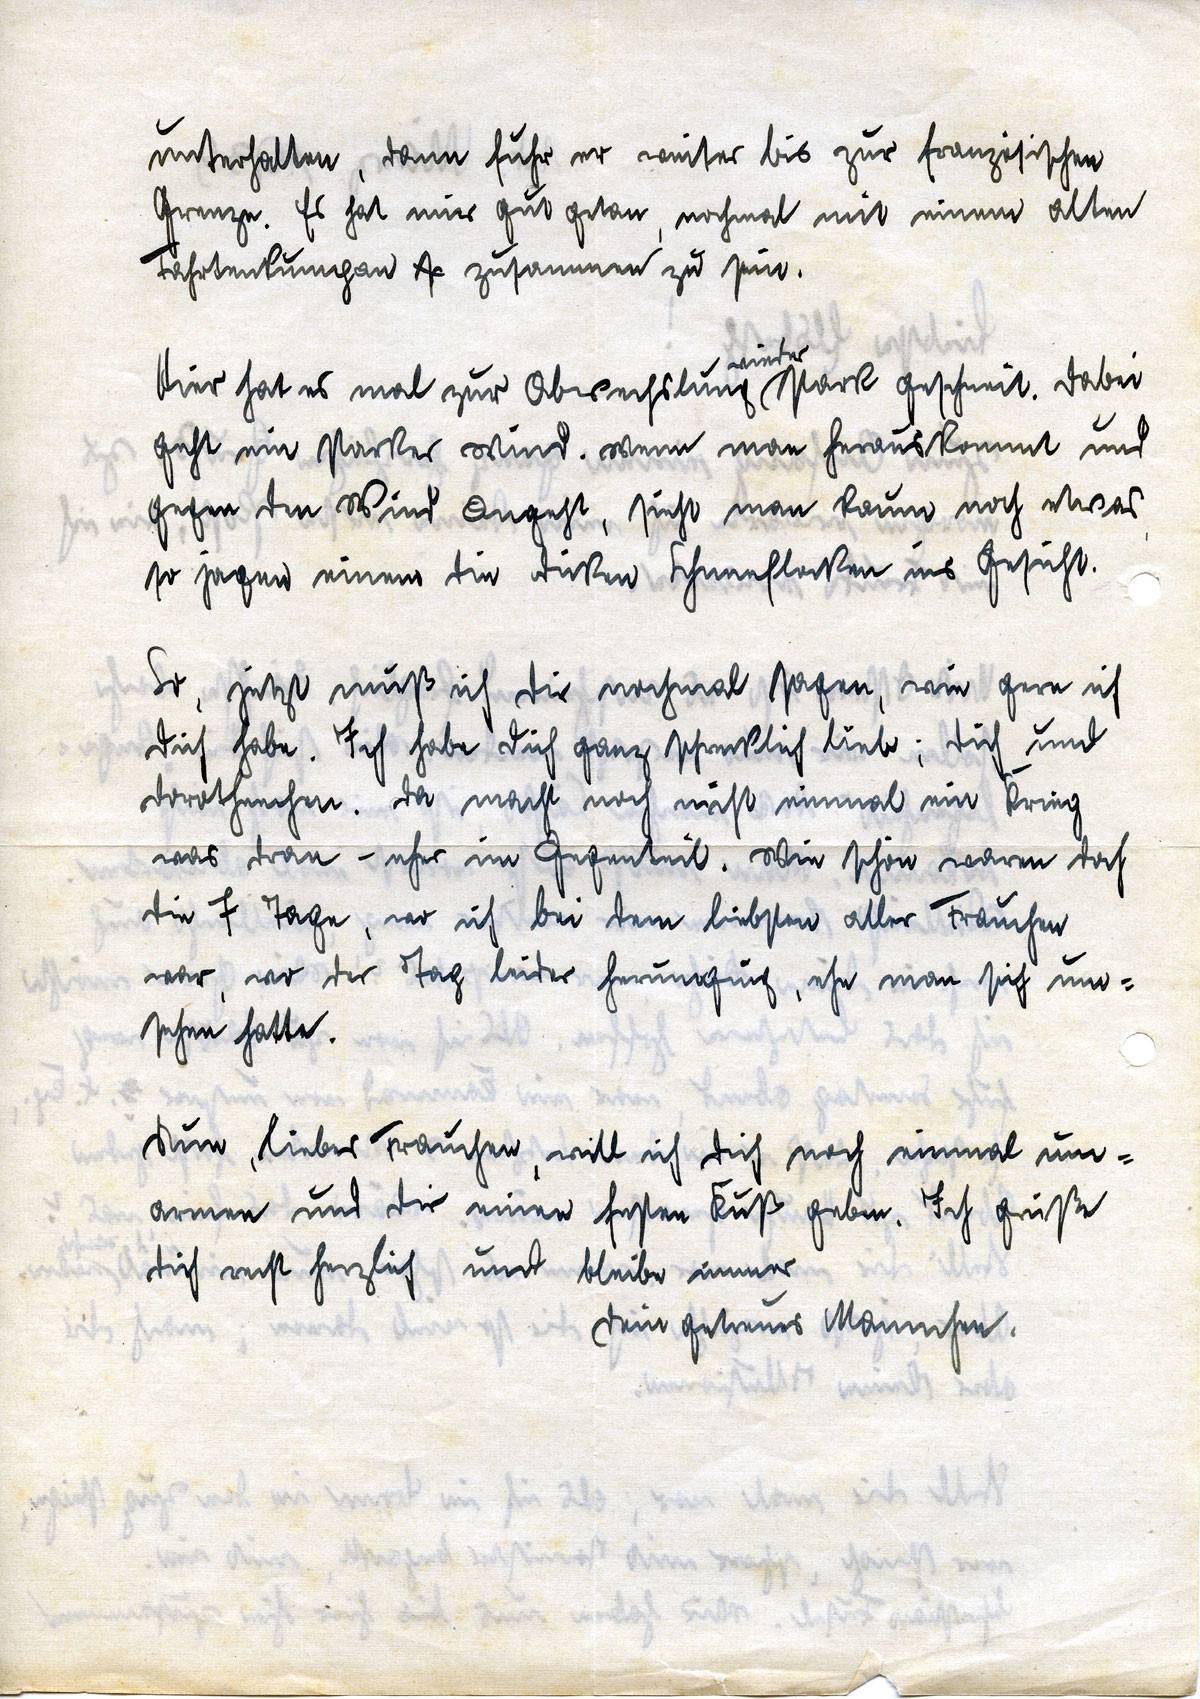 unterhalten, dann fuhr er weiter bis zur französischen
Grenze. Es hat mir gut getan, nochmal mit einem alten
Fahrtenkumpan zusammen zu sein.
Hier hat es mal zur Abwechslung wieder stark geschneit. Dabei
geht ein starker Wind. Wenn man herauskommt und
gegen den Wind angeht, sieht man kaum noch etwas,
so jagen einem die dicken Schneeflocken ins Gesicht.
So, jetzt muß ich dir nochmal sagen, wie gern ich
dich habe. Ich habe dich ganz schrecklich lieb; dich und
Dorotheechen. Da macht noch nicht einmal ein Krieg
was dran – eher im Gegenteil. Wie schön waren doch
die 7 Tage, wo ich bei dem liebsten aller Frauchen
war, wo der Tag leider herumging, ehe man sich um=
sehen hatte.
Nun, liebes Frauchen, will ich dich noch einmal um=
armen und dir einen festen Kuß geben. Ich grüße
dich recht herzlich und bleibe immer
dein getreues Männchen.